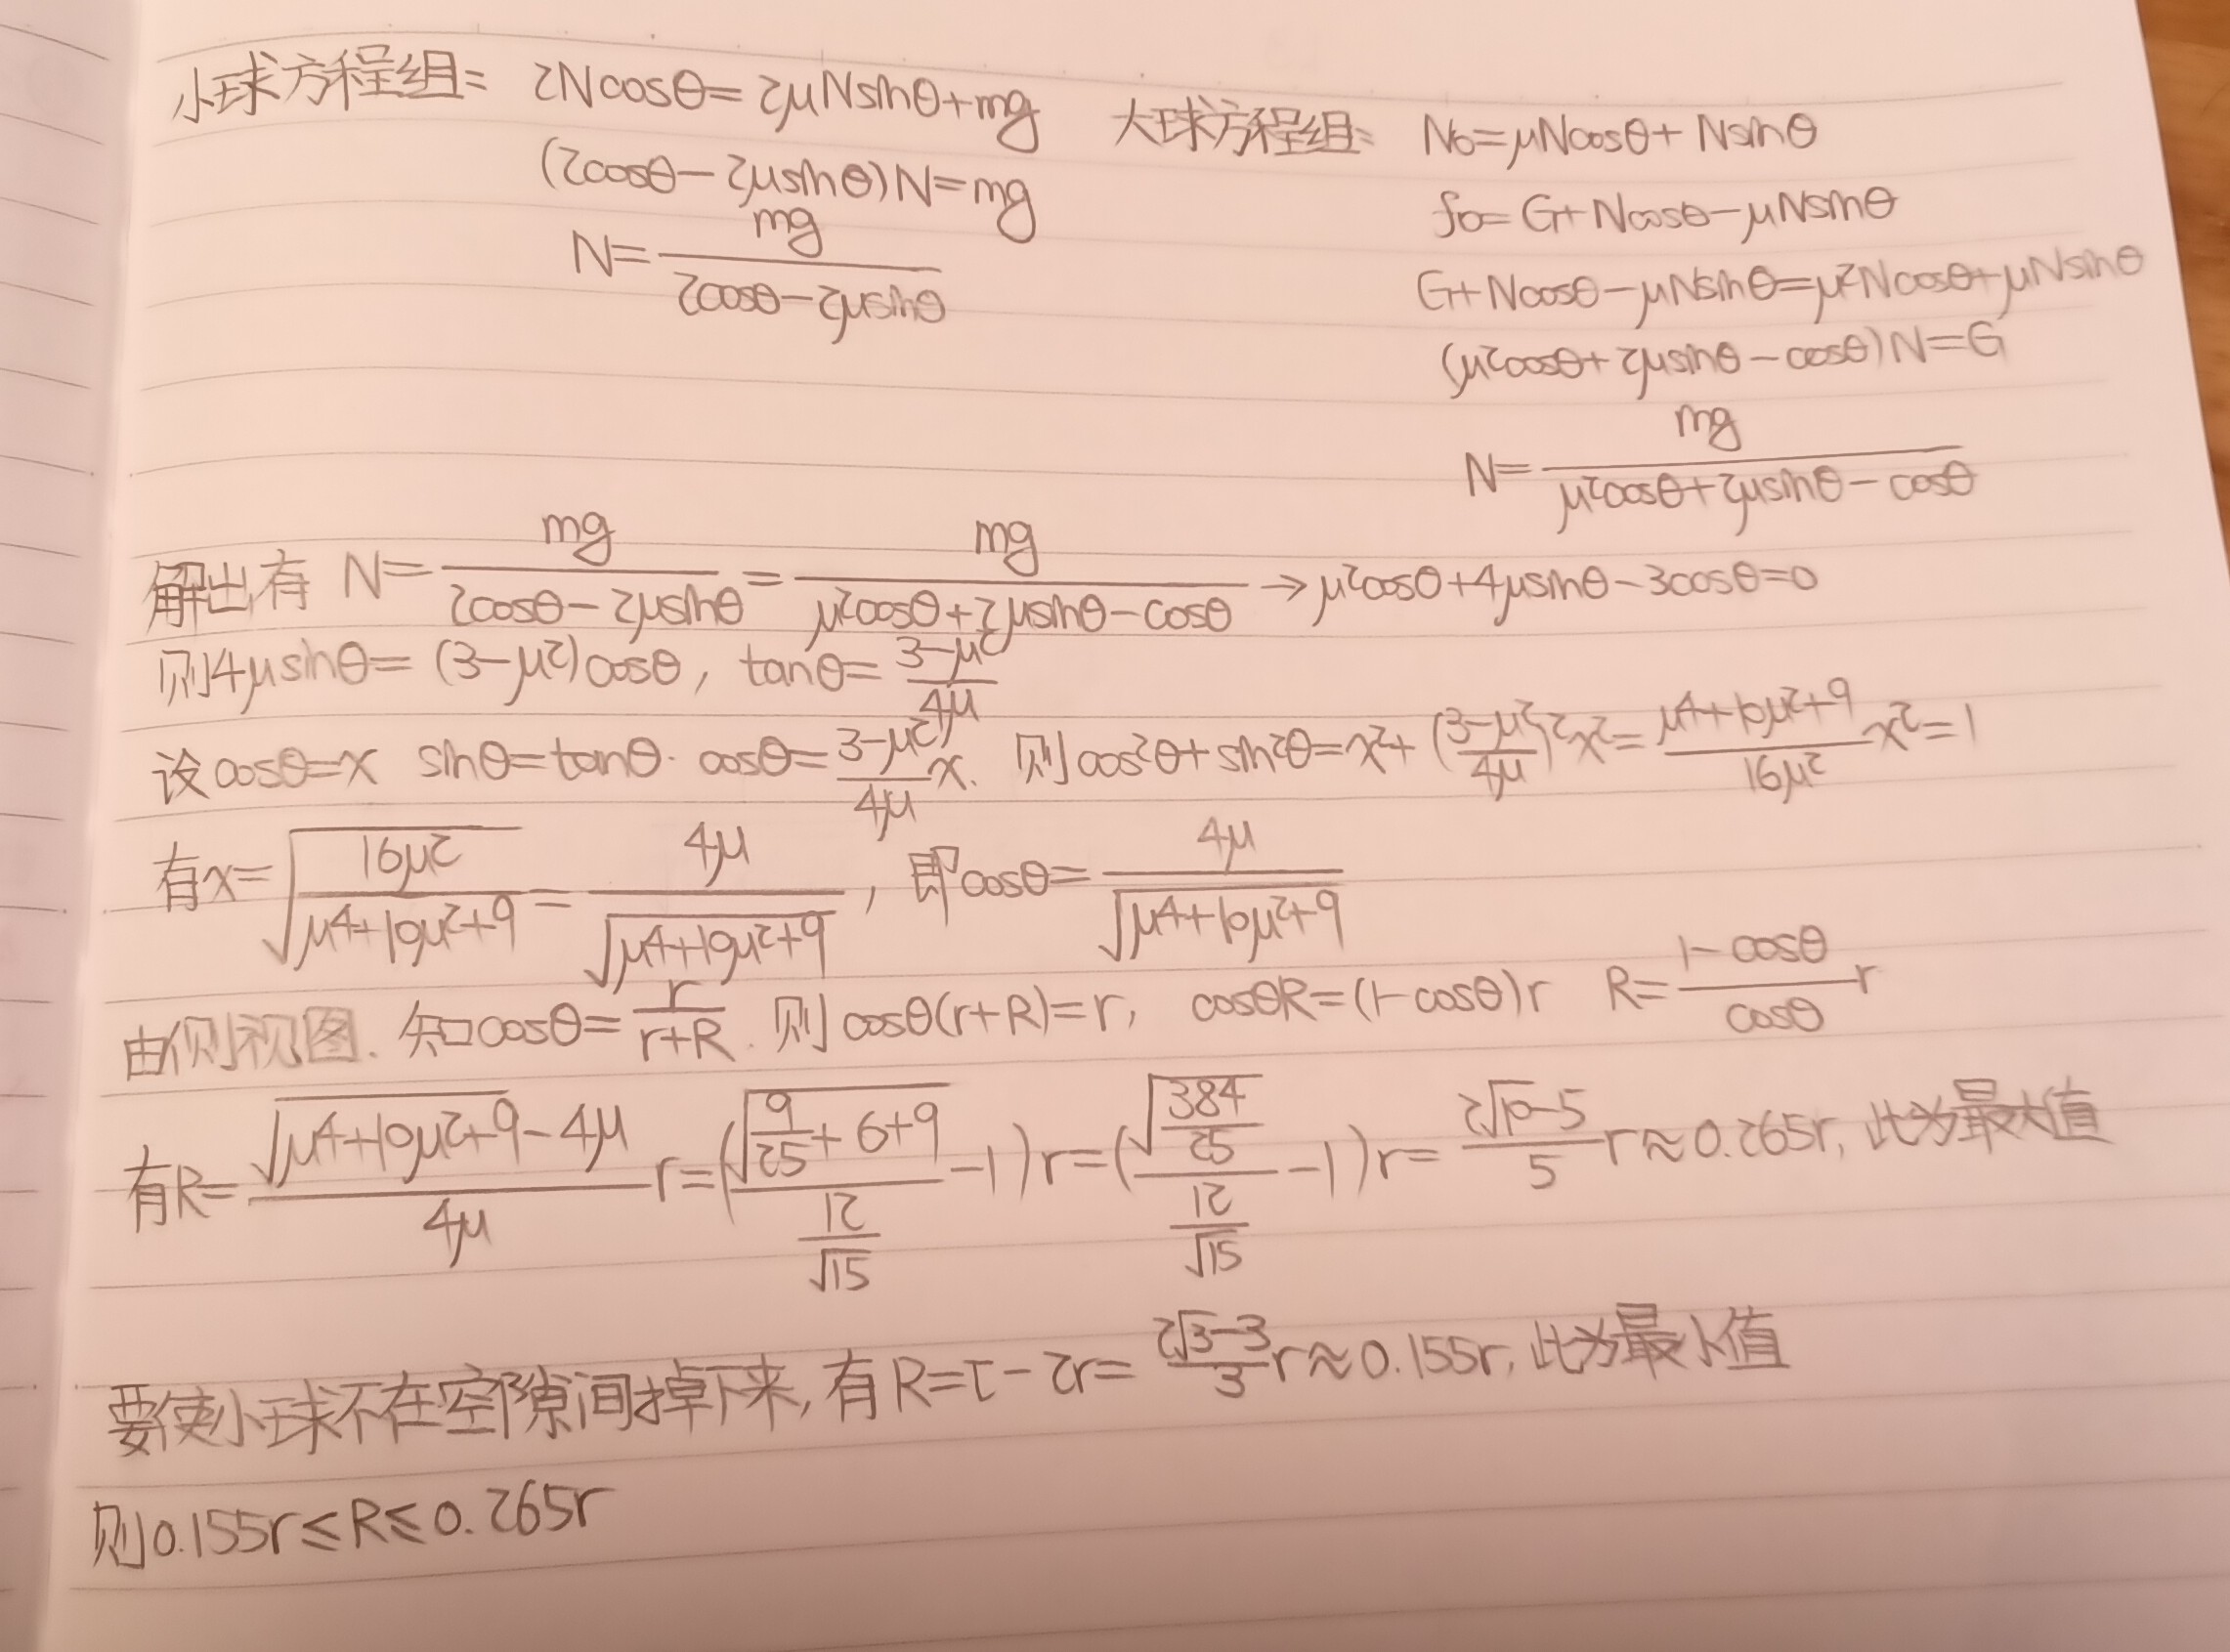 小球方程组: 2Ncosθ=2μNsinθ+mg
(2cosθ-2μsinθ)N=mg
N=mg/(2cosθ-2μsinθ)
大球方程组: N₀=μNcosθ+Nsinθ
f₀=G+Ncosθ-μNsinθ
G+Ncosθ-μNsinθ=μ²Ncosθ+μNsinθ
(μ²cosθ+2μsinθ-cosθ)N=G
N=mg/(μ²cosθ+2μsinθ-cosθ)
解出有 N=mg/(2cosθ-2μsinθ)=mg/(μ²cosθ+2μsinθ-cosθ)→μ²cosθ+4μsinθ-3cosθ=0
则4μsinθ=(3-μ²)cosθ, tanθ=(3-μ²)/4μ
设cosθ=x sinθ=tanθ·cosθ=(3-μ²)/4μ x. 则cos²θ+sin²θ=x²+((3-μ²)/4μ)²x²=(μ⁴+10μ²+9)/16μ² x²=1
有x=√(16μ²/(μ⁴+10μ²+9))=4μ/√(μ⁴+10μ²+9), 即cosθ=4μ/√(μ⁴+10μ²+9)
由侧视图. 知cosθ=r/(r+R). 则cosθ(r+R)=r, cosθR=(1-cosθ)r R=(1-cosθ)/cosθ r
有R=(√(μ⁴+10μ²+9)-4μ)/4μ r=(√(9/25+6+9)/(12/√15)-1)r=(√(384/25)/(12/√15)-1)r=(2√10-5)/5 r≈0.265r, 此为最大值
要使小球不在空隙间掉下来, 有R=τ-2r=(2√3-3)/3 r≈0.155r, 此为最小值
则0.155r≤R≤0.265r